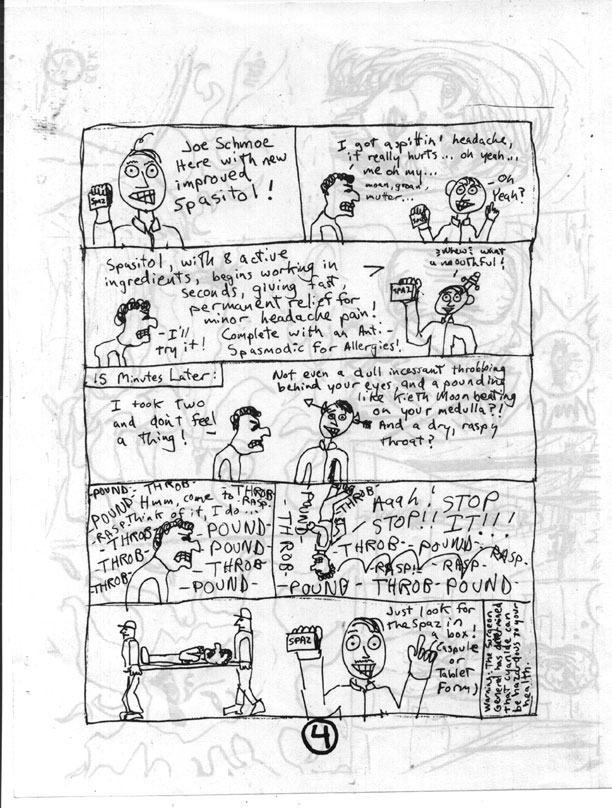 Joe Schmoe
Here with new
improved
Spasitol!
SPAZ
I got a spittin' headache,
it really hurts... oh yeah...
me oh my...
moan, groan,
muter...
Oh
Yeah?
Spasitol, with 8 active
ingredients, begins working in
seconds, giving fast,
permanent relief for
minor headache pain!
Complete with an Anti-
Spasmodic for Allergies!
-I'll
try it!
Whew! what
a mouthful!
SPAZ
15 Minutes Later:
I took Two
and don't feel
a thing!
Not even a dull incessant throbbing
behind your eyes, and a pounding
like Kieth Moon beating
on your medulla?!
And a dry, raspy
throat?
-POUND- THROB-
POUND- Hmm, come to THROB-
-RASP- Think of it, I do... RASP-
-THROB- -POUND-
-THROB- -POUND-
-THROB- -THROB-
-THROB- -POUND-
POUND
THROB-
THROB-
Aagh! STOP
STOP!! IT!!!
-THROB- POUND-
-RASP!- RASP- RASP-
-POUND- THROB-POUND-
SPAZ
Just look for
the Spaz in
a box!
Caspule
or
Tablet
Form,
Warning: The Surgeon
General has determined
that cyanide can
be hazardous to your
health.
4